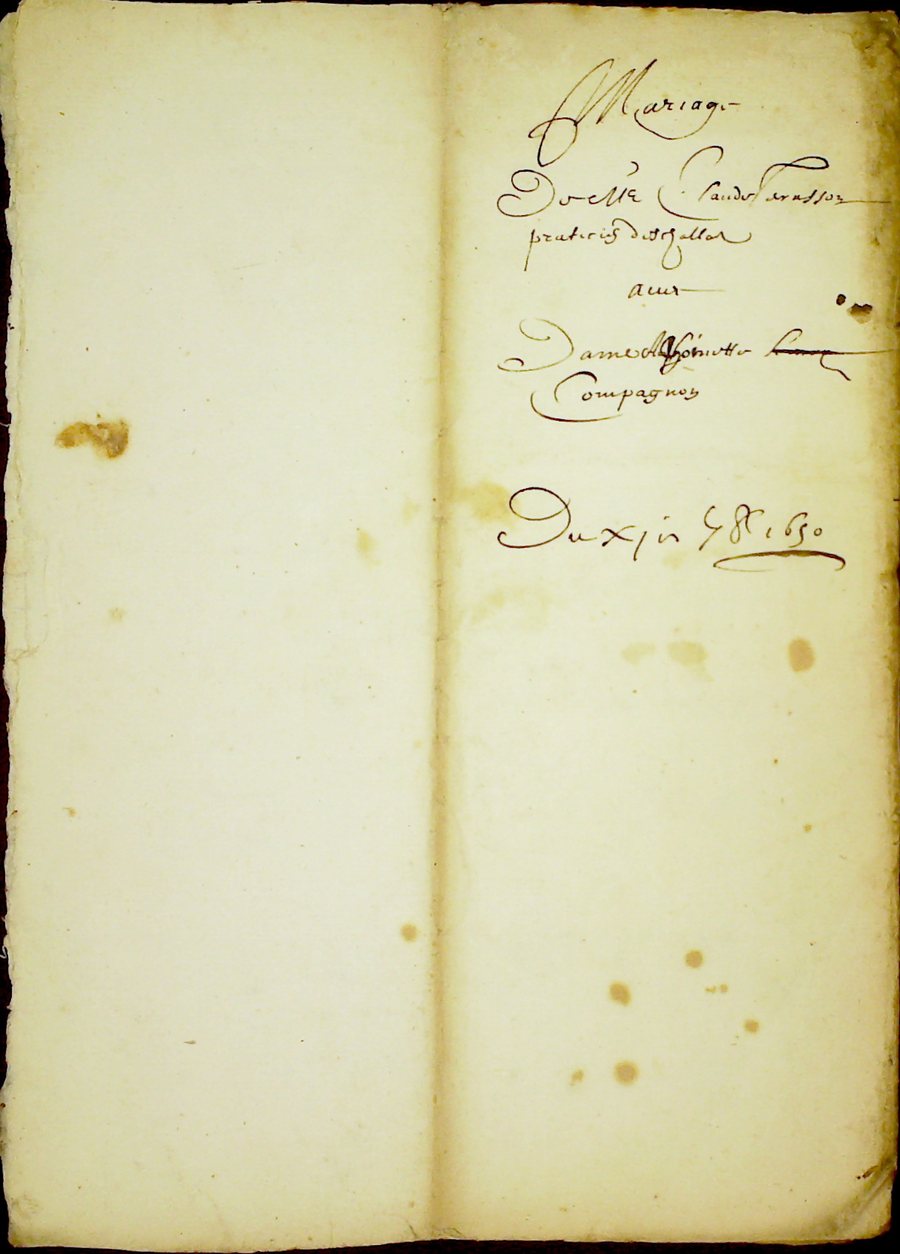 Mariage
De Me Claude Terrasson
praticien deschallas
avec
Dame Anthoinette
Compagnon
Du xj in 7br 1650